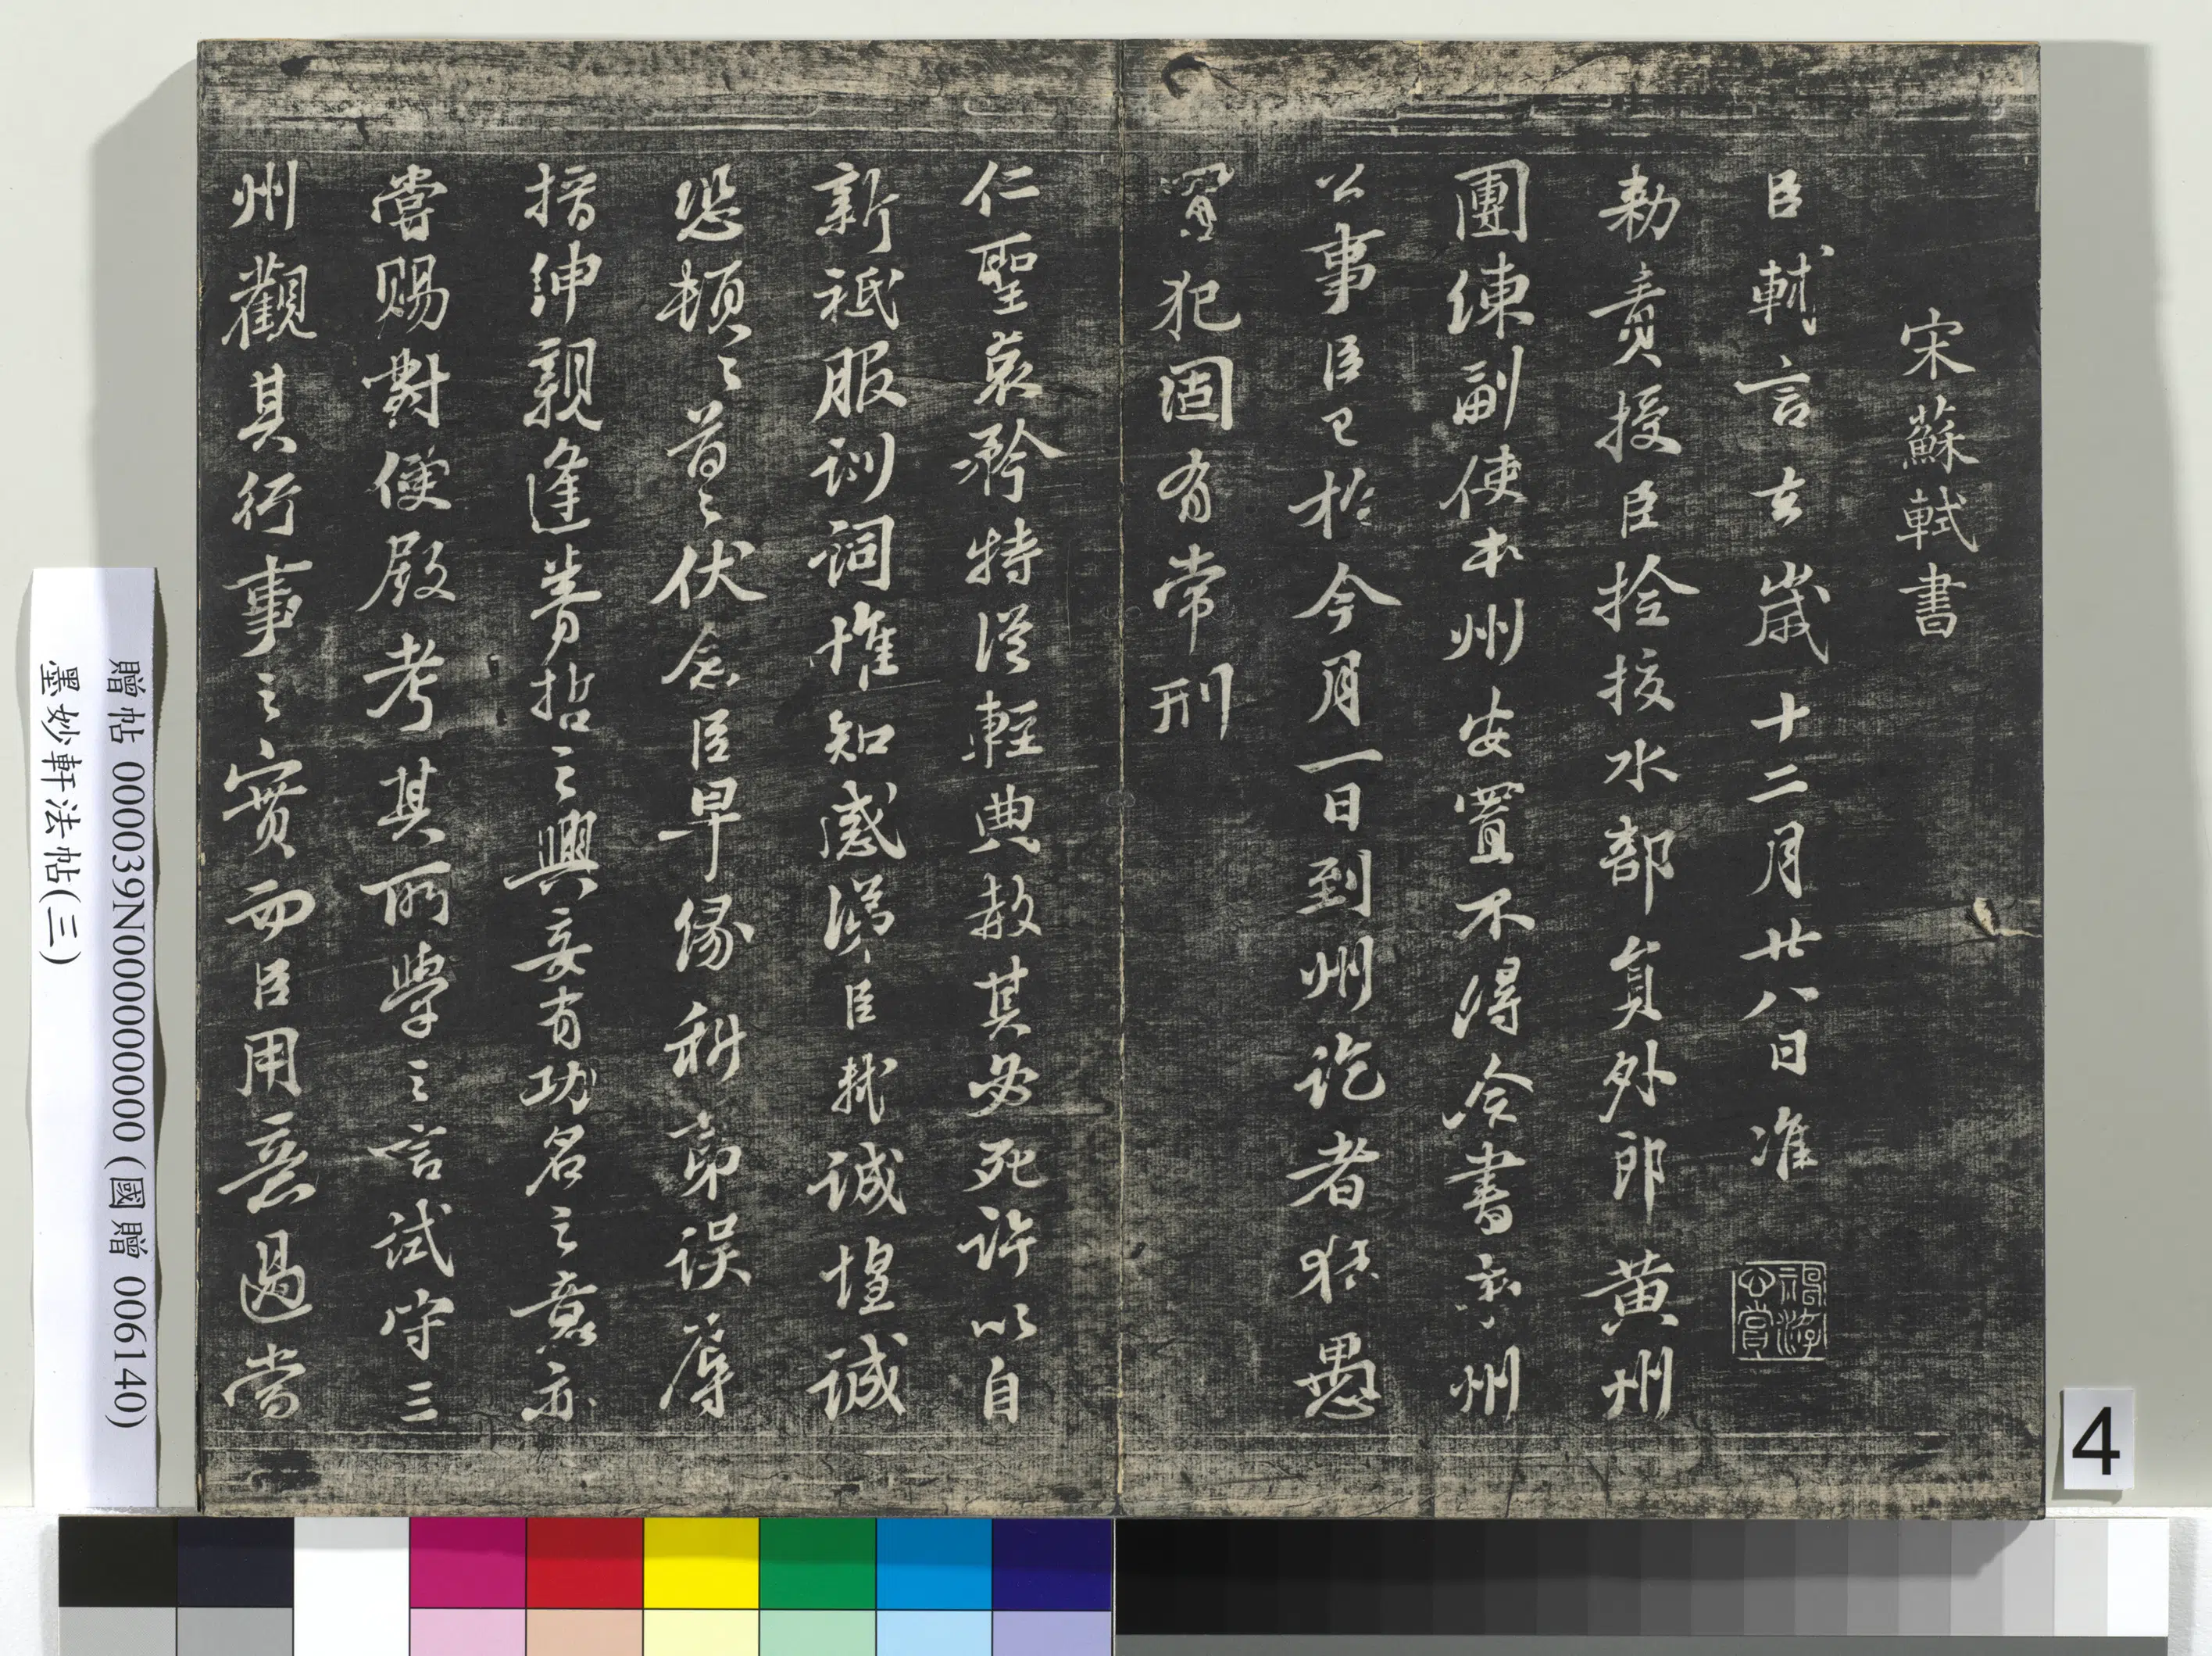 宋蘇軾書
臣軾言去歲十二月廿八日准
勅責授臣撿挍水部員外郎黃州
團練副使本州安置不得僉書本州
公事臣已於今月一日到州訖者狂愚
冒犯固有常刑
仁聖哀矜特從輕典赦其必死許以自
新祗服訓詞惟知感涕臣軾誠惶誠
恐頓〻首〻伏念臣早緣科第誤辱
搢紳親逢睿哲之興妄有功名之意亦
嘗賜對便殿考其所學之言試守三
州觀其行事之實而臣用意過當
贈帖 000039N000000000 (國贈 006140)
墨妙軒法帖(三)
4